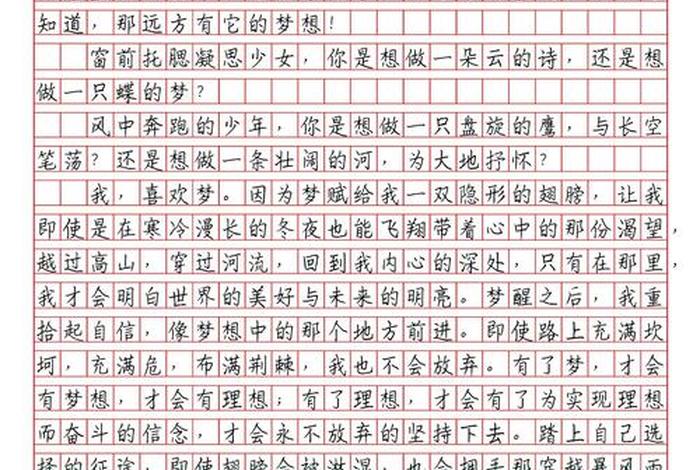 知道，那远方有它的梦想！
窗前托腮凝思少女，你是想做一朵云的诗，还是想
做一只蝶的梦？
风中奔跑的少年，你是想做一只盘旋的鹰，与长空
笔荡？还是想做一条壮阔的河，为大地抒怀？
我，喜欢梦。因为梦赋给我一双隐形的翅膀，让我
即使是在寒冷漫长的冬夜也能飞翔带着心中的那份渴望，
越过高山，穿过河流，回到我内心的深处，只有在那里，
我才会明白世界的美好与未来的明亮。梦醒之后，我重
拾起自信，像梦想中的那个地方前进。即使路上充满坎
坷，充满危，布满荆棘，我也不会放弃。有了梦，才会
有梦想，才会有理想；有了理想，才会有了为实现理想
而奋斗的信念，才会永不放弃的坚持下去。踏上自己选
择的征途，即使翅膀会被淋湿，也会拥手那穿越暴风雨